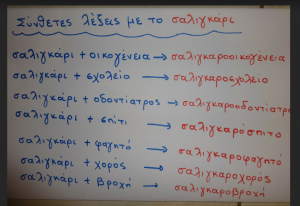 Σύνθετες λέξεις με το σαλιγκάρι
σαλιγκάρι + οικογένεια → σαλιγκαροοικογένεια
σαλιγκάρι + σχολείο → σαλιγκαροσχολείο
σαλιγκάρι + οδοντίατρος → σαλιγκαροοδοντίατρος
σαλιγκάρι + σπίτι → σαλιγκαρόσπιτο
σαλιγκάρι + φαγητό → σαλιγκαροφαγητό
σαλιγκάρι + χορός → σαλιγκαροχορός
σαλιγκάρι + βροχή → σαλιγκαροβροχή